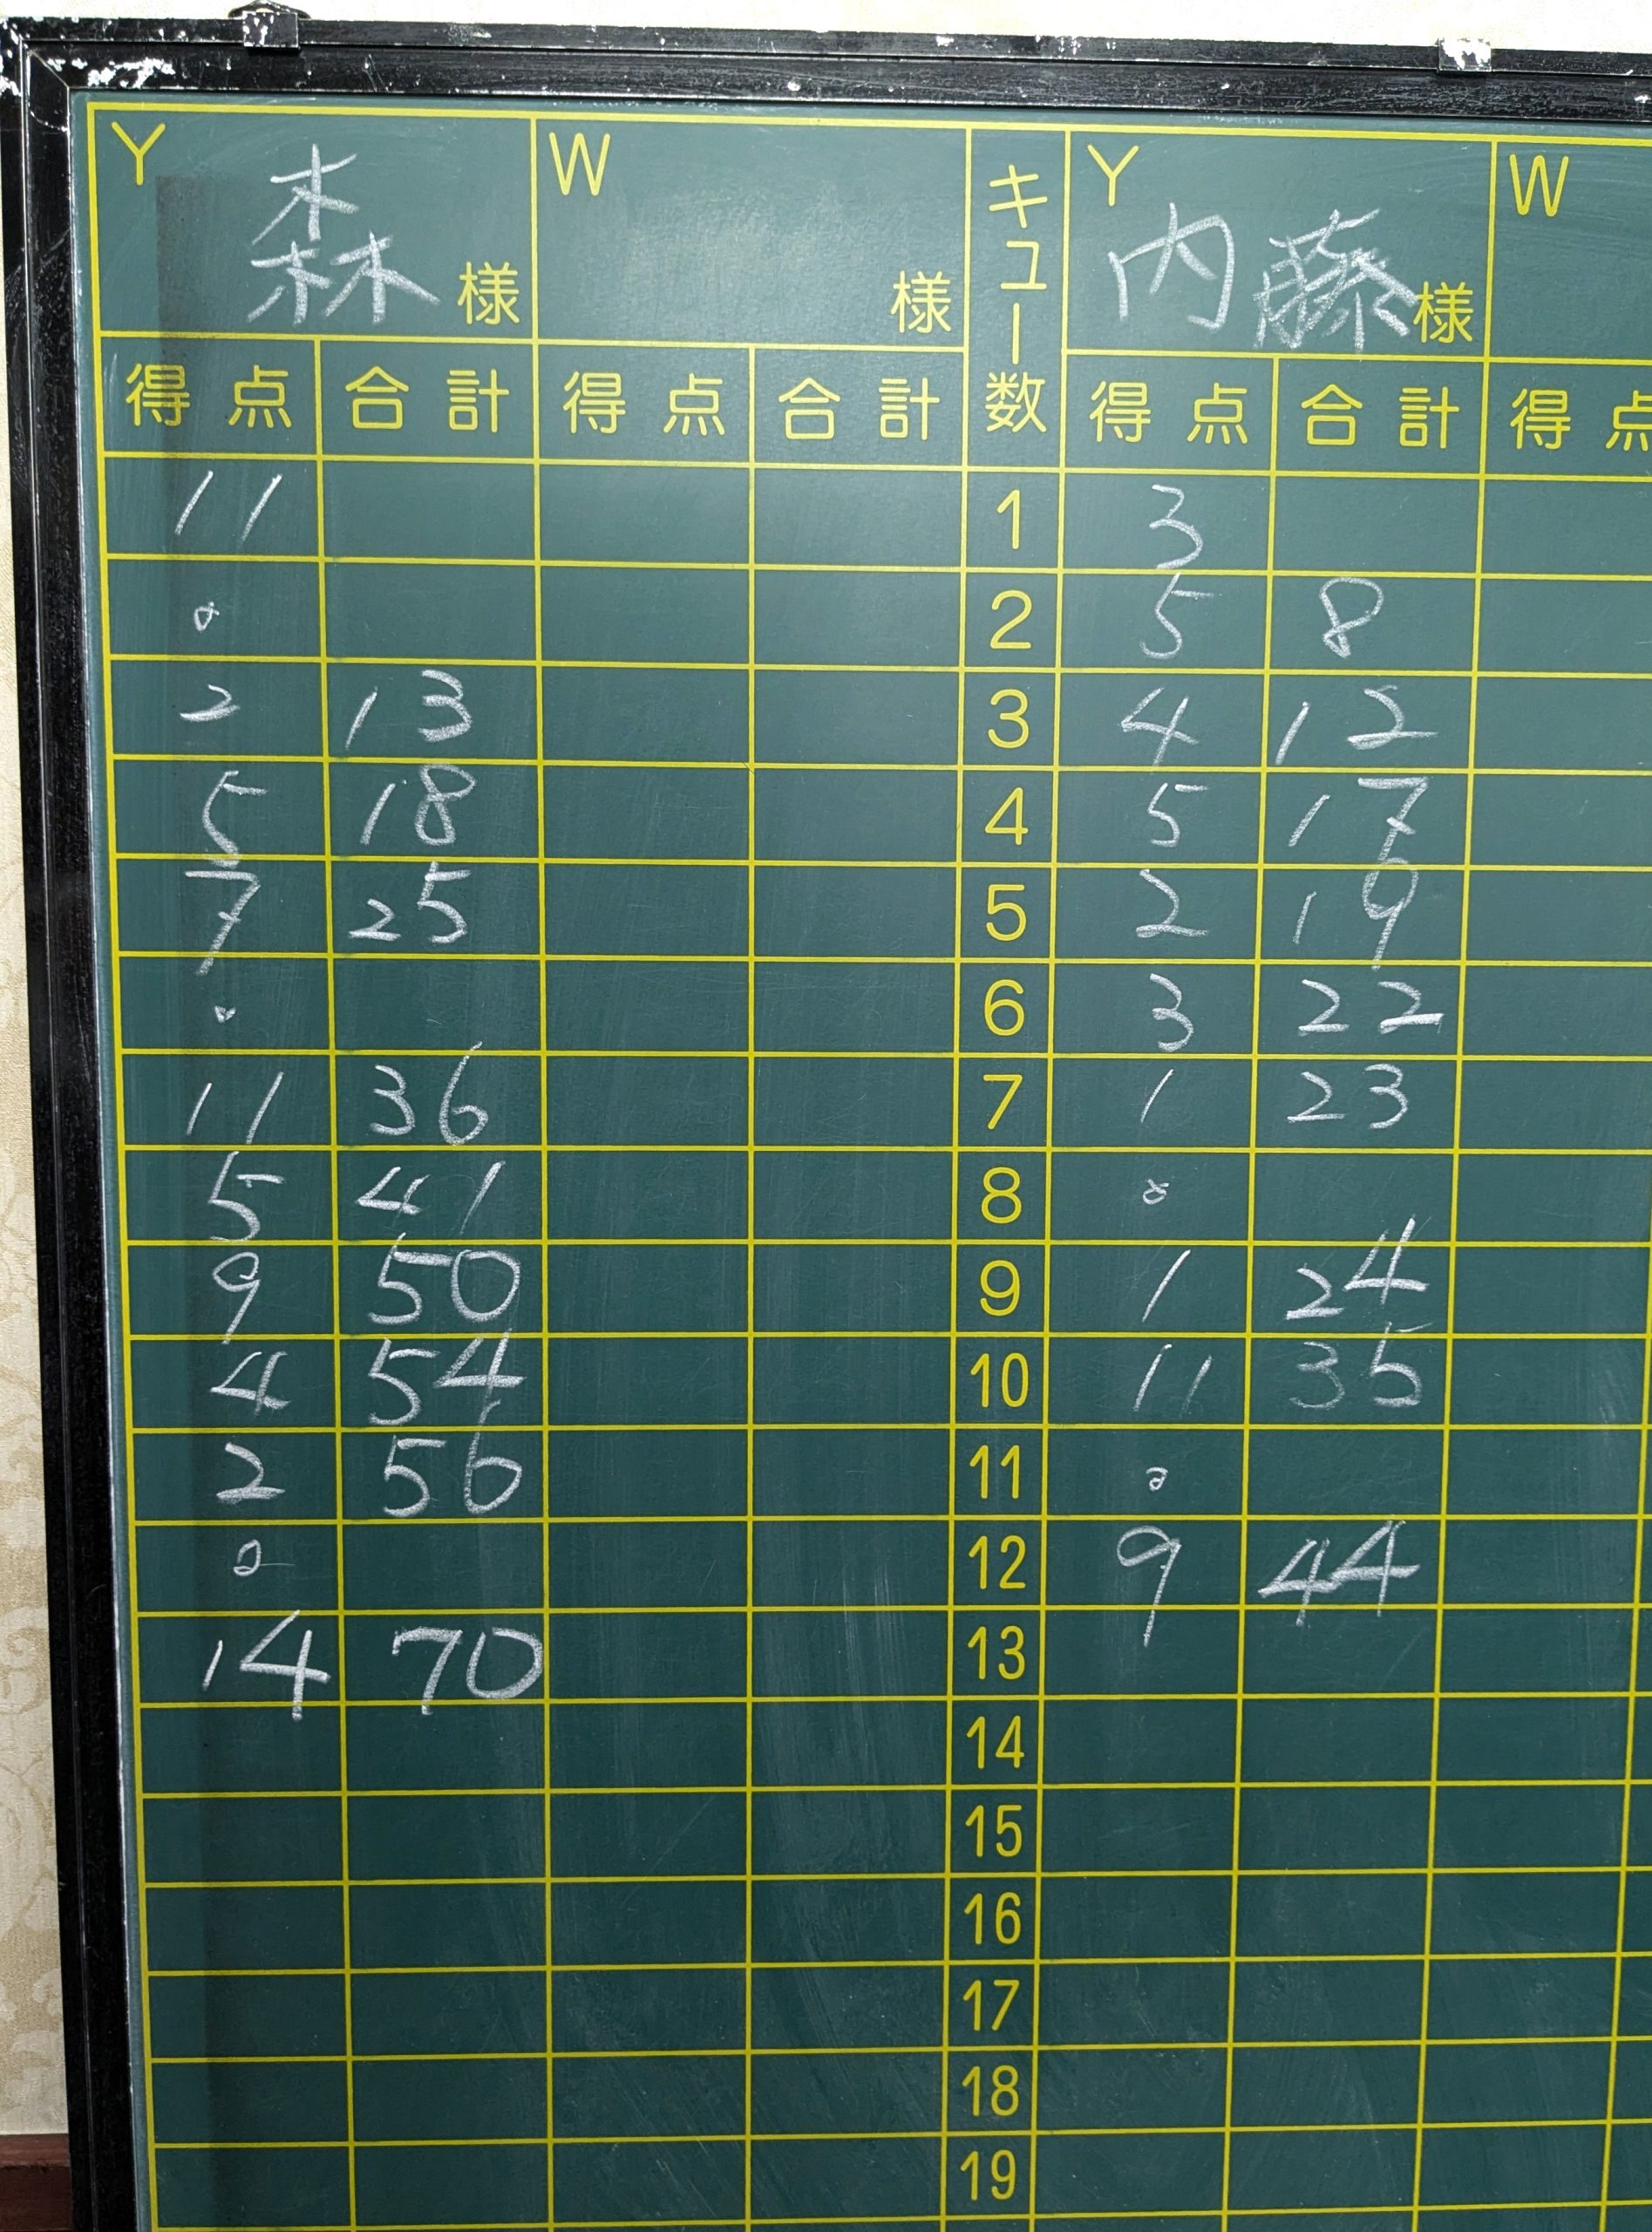 Y 森 様 W 様 キュー数 Y 内藤 様 W
得点 合計 得点 合計 得点 合計 得点
11 1 3
0 2 5 8
2 13 3 4 12
5 18 4 5 17
7 25 5 2 19
0 6 3 22
11 36 7 1 23
5 41 8 0
9 50 9 1 24
4 54 10 11 35
2 56 11 0
0 12 9 44
14 70 13
14
15
16
17
18
19